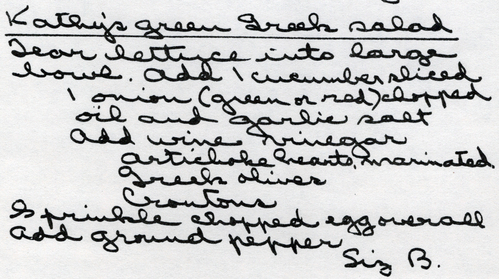 Kathy's green Greek salad
Tear lettuce into large
bowl. Add 1 cucumber, sliced
1 onion, (green or red) chopped
oil and garlic salt
Add wine vinegar
artichoke hearts, marinated
Greek olives
Croutons
Sprinkle chopped egg overall
Add ground pepper
Siz B.